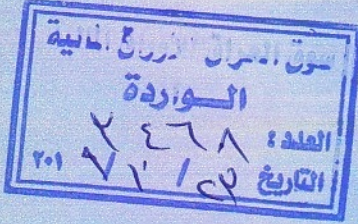 سوق العراق للأوراق المالية
الواردة
العدد: ٣٤٦٨
التاريخ ٢٣ / ١٠ / ٢٠١٧